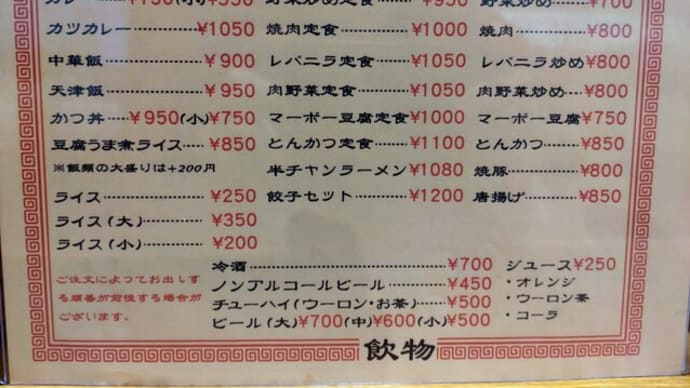 カレー ¥750(小)¥550
カツカレー ¥1050
中華飯 ¥900
天津飯 ¥950
かつ丼 ¥950(小)¥750
豆腐うま煮ライス ¥850
※飯類の大盛りは+200円
ライス ¥250
ライス(大) ¥350
ライス(小) ¥200
野菜炒め定食 ¥950
焼肉定食 ¥1000
レバニラ定食 ¥1050
肉野菜定食 ¥1050
マーボー豆腐定食 ¥1000
とんかつ定食 ¥1100
半チャンラーメン ¥1080
餃子セット ¥1200
野菜炒め ¥700
焼肉 ¥800
レバニラ炒め ¥800
肉野菜炒め ¥800
マーボー豆腐 ¥750
とんかつ ¥850
焼豚 ¥800
唐揚げ ¥850
ご注文によってお出しす
る順番が前後する場合が
ございます。
冷酒 ¥700
ノンアルコールビール ¥450
チューハイ(ウーロン・お茶) ¥500
ビール(大)¥700(中)¥600(小)¥500
ジュース ¥250
・オレンジ
・ウーロン茶
・コーラ
飲物